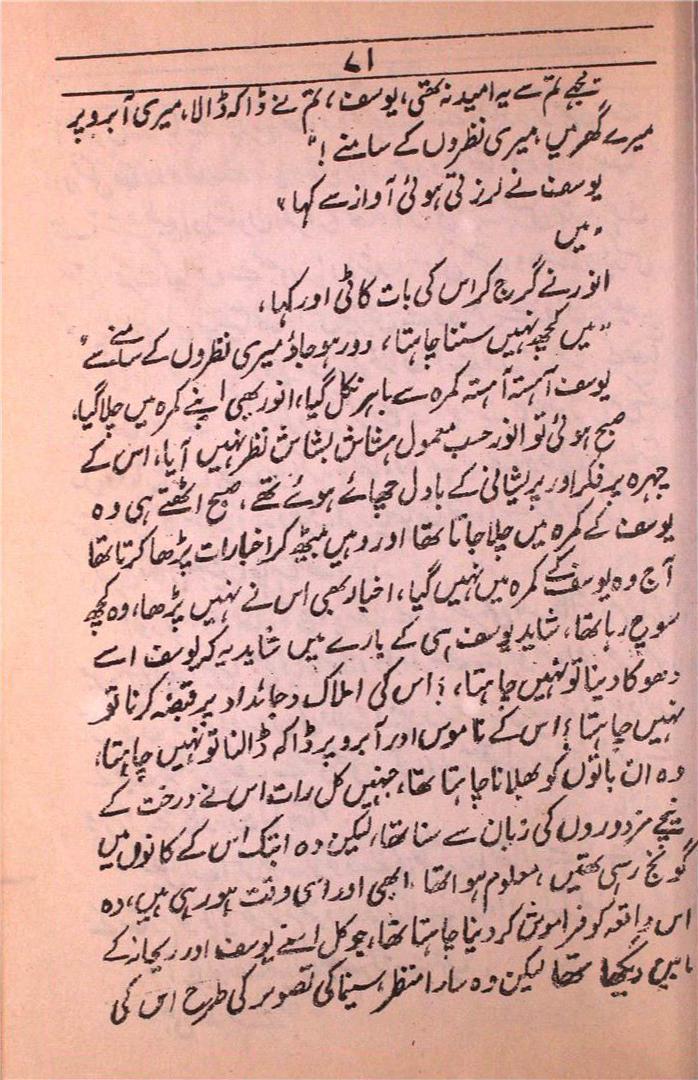 ۷۱
مجھے تم سے یہ امید نہ تھی، یوسف، تم نے ڈاکہ ڈالا، میری آبرو پر
میرے گھر میں، میری نظروں کے سامنے!"
یوسف نے لرزتی ہوئی آواز سے کہا،
"میں
انور نے گرج کر اس کی بات کاٹی اور کہا،
"میں کچھ نہیں سننا چاہتا، دور ہو جاؤ میری نظروں کے سامنے سے"
یوسف آہستہ آہستہ کمرہ سے باہر نکل گیا، انور بھی اپنے کمرہ میں چلا گیا،
صبح ہوئی تو انور حسب معمول ہشاش بشاش نظر نہیں آیا، اس کے
چہرہ پر فکر اور پریشانی کے بادل چھائے ہوئے تھے، صبح اٹھتے ہی وہ
یوسف کے کمرہ میں چلا جاتا تھا اور وہیں بیٹھ کر اخبارات پڑھا کرتا تھا
آج وہ یوسف کے کمرہ میں نہیں گیا، اخبار بھی اس نے نہیں پڑھا، وہ کچھ
سوچ رہا تھا، شاید یوسف ہی کے بارے میں شاید یہ کہ یوسف اسے
دھوکا دینا تو نہیں چاہتا، ؟ اس کی املاک و جائداد پر قبضہ کرنا تو
نہیں چاہتا؟ اس کے ناموس اور آبرو پر ڈاکہ ڈالنا تو نہیں چاہتا،
وہ ان باتوں کو بھلانا چاہتا تھا، جنہیں کل رات اس نے درخت کے
نیچے مزدوروں کی زبان سے سنا تھا، لیکن وہ ابتک اس کے کانوں میں
گونج رہی تھیں، معلوم ہوتا تھا ابھی اور اسی وقت ہو رہی ہیں، وہ
اس واقعہ کو فراموش کر دینا چاہتا تھا، جو کل اسنے یوسف اور ریحانہ کے
مابین دیکھا تھا لیکن وہ سارا منظر، سینما کی تصویر کی طرح اس کی